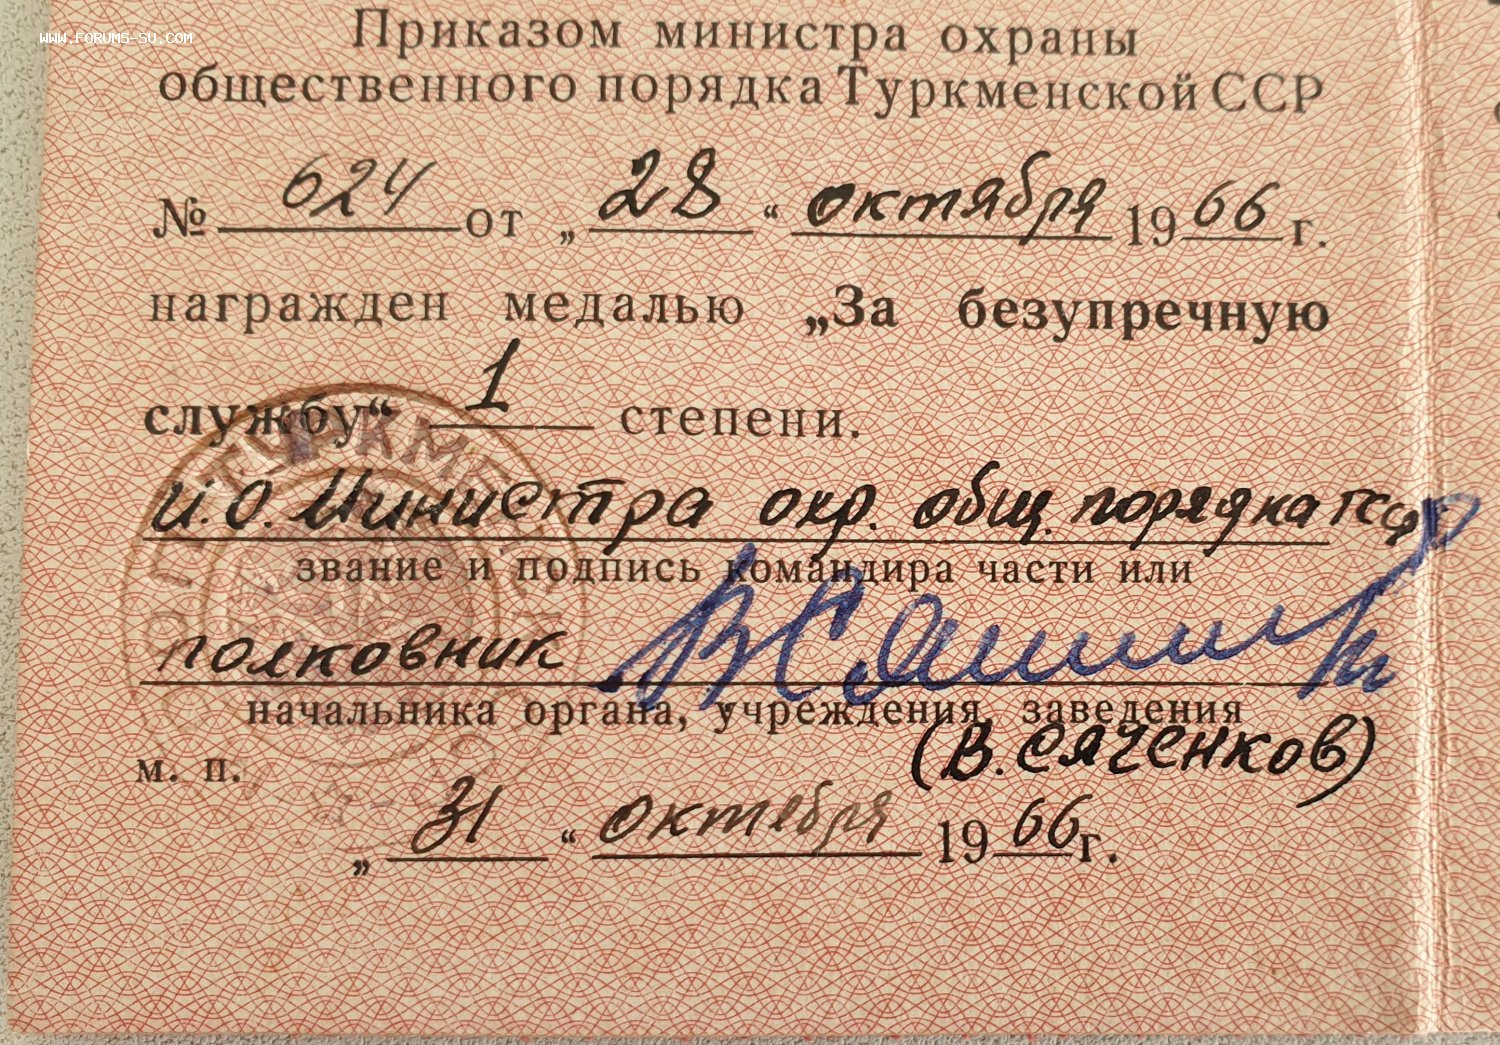 www.forums-su.com
Приказом министра охраны
общественного порядка Туркменской ССР
№ 624 от „28“ октября 1966 г.
награжден медалью „За безупречную
службу“ 1 степени.
И.О. Министра охр. общ. порядка ТССР
звание и подпись командира части или
полковник
начальника органа, учреждения, заведения
(В. Сяченков)
м. п.
„31“ октября 1966 г.